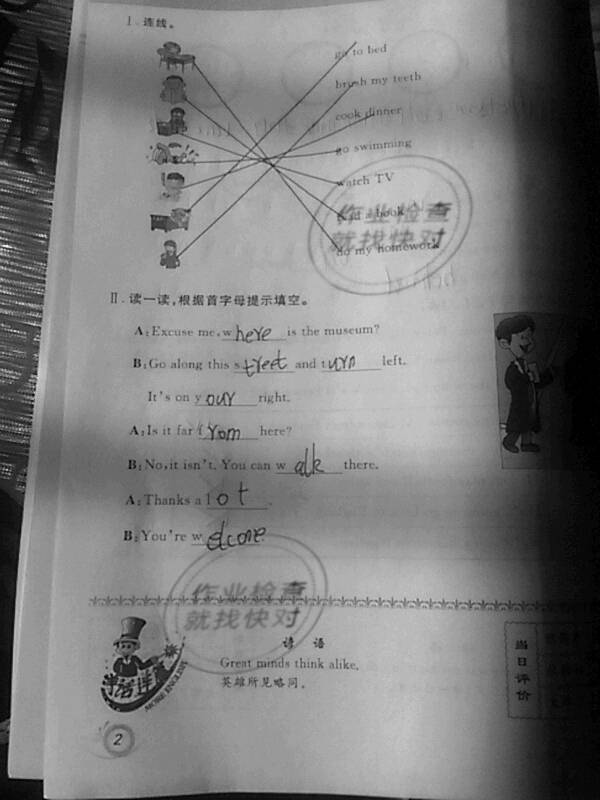 Ⅰ.连线。
go to bed
brush my teeth
cook dinner
go swimming
watch TV
a book
do my homework
作业检查
就找快对
Ⅱ.读一读,根据首字母提示填空。
A:Excuse me, where is the museum?
B:Go along this street and turn left.
It's on your right.
A:Is it far from here?
B:No,it isn't. You can walk there.
A:Thanks a lot.
B:You're welcome
作业检查
就找快对
谚 语
Great minds think alike.
英雄所见略同。
MORE ENGLISH
当日评价
2